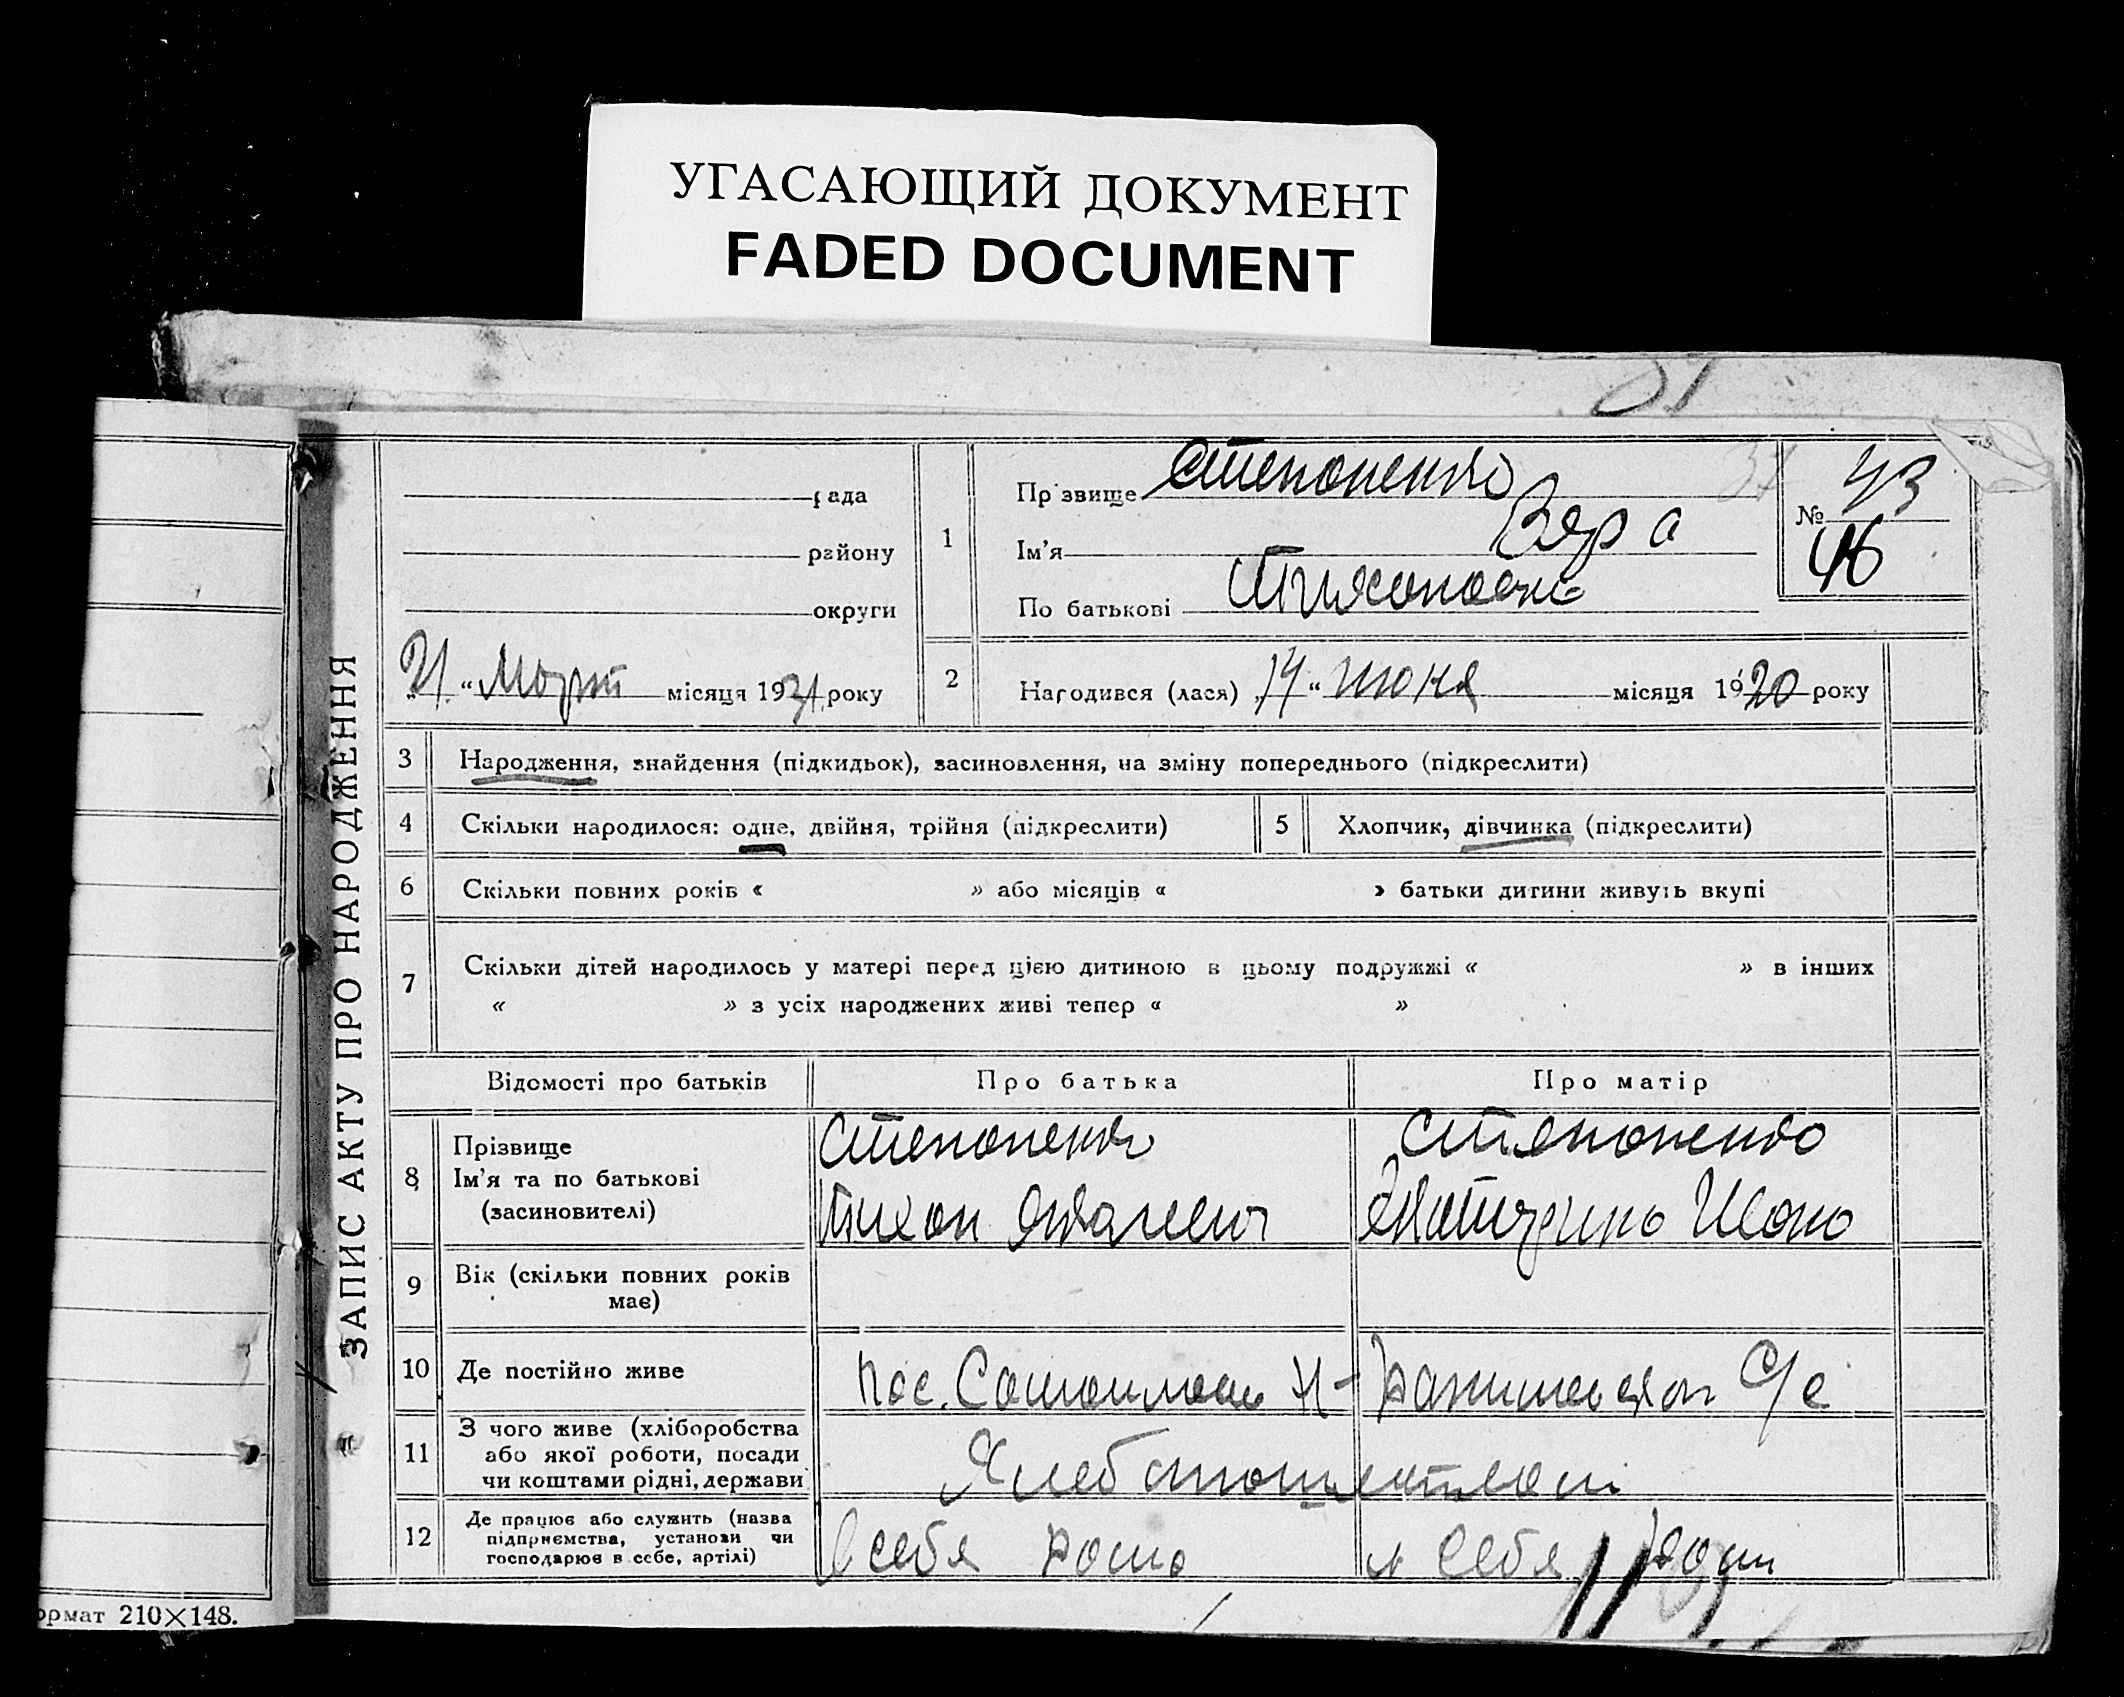 УГАСАЮЩИЙ ДОКУМЕНТ
FADED DOCUMENT
ЗАПИС АКТУ ПРО НАРОДЖЕННЯ
рада
району
округи
„21“ Март місяця 1931 року
1
Прізвище Степоненко
Ім'я Вера
По батькові Тихоновна
№ 43
46
2
Народився (лася) „14“ июня місяця 1920 року
3 Народження, знайдення (підкидьок), засиновлення, на зміну попереднього (підкреслити)
4 Скільки народилося: одне, двійня, трійня (підкреслити)
5 Хлопчик, дівчинка (підкреслити)
6 Скільки повних років « » або місяців « » батьки дитини живуть вкупі
7 Скільки дітей народилось у матері перед цією дитиною в цьому подружжі « » в інших
« » з усіх народжених живі тепер « »
Відомості про батьків
Про батька
Про матір
8
Прізвище
Ім'я та по батькові
(засиновителі)
Степоненко
Тихон
Степоненко
Екатерина
9 Вік (скільки повних років
має)
10 Де постійно живе
пос. С/с
11
З чого живе (хліборобства
або якої роботи, посади
чи коштами рідні, держави
12
Де працює або служить (назва
підприємства, установи чи
господарює в себе, артілі)
в себя
в себя
ормат 210×148.